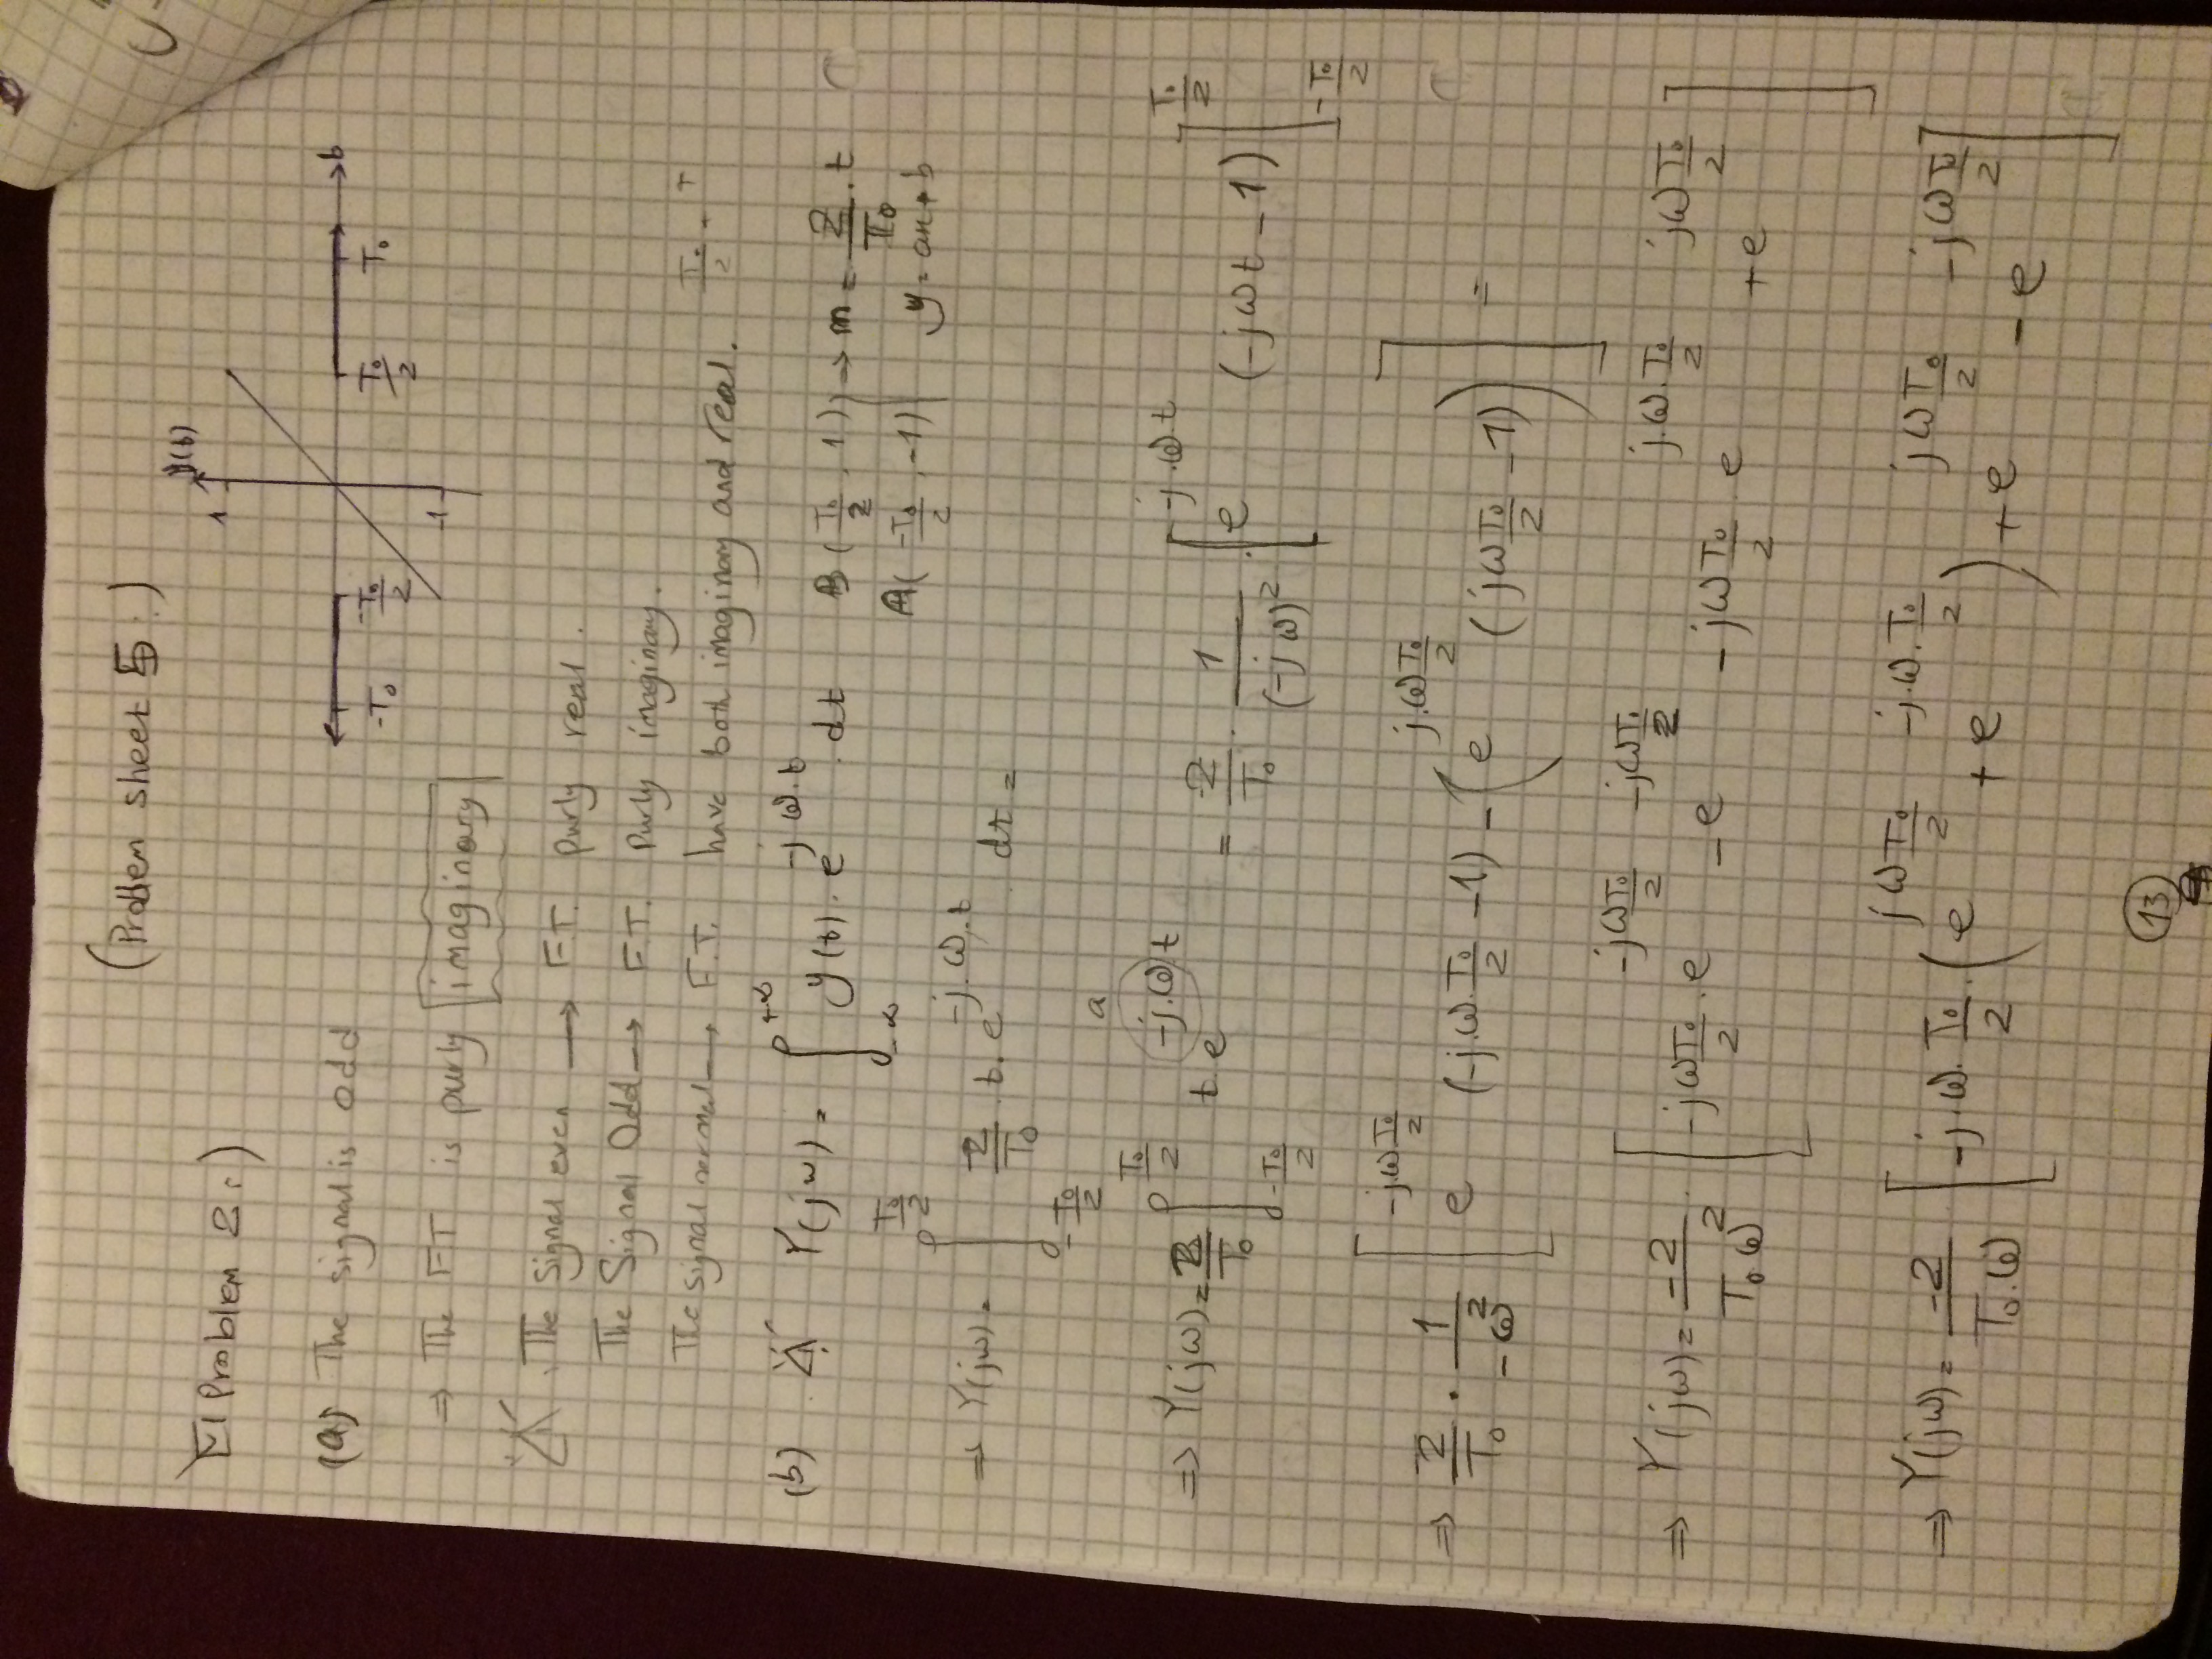 (Problem sheet 5:)
Problem 2:)
y(t)
1
t
-T₀
-T₀/2
T₀/2
T₀
-1
(a) The signal is odd
⇒ The FT is purly imaginary
. The signal even → F.T. purly real.
The Signal Odd → F.T. Purly imaginary.
The signal normal → F.T. have both imaginary and real. T₀/2 - T
(b) Y(jω) = ∫_{-∞}^{+∞} y(t) . e^{-jω.t} . dt
B(T₀/2, 1) ⇒ m = 2/T₀ . t
A(-T₀/2, -1) y = ax + b
⇒ Y(jω) = ∫_{-T₀/2}^{T₀/2} 2/T₀ . t . e^{-j.ω.t} dt =
a
⇒ Y(jω) = 2/T₀ ∫_{-T₀/2}^{T₀/2} t . e^{-j.ω.t} = 2/T₀ . 1/(-jω)² . [e^{-j.ω.t} (-jωt - 1)]_{-T₀/2}^{T₀/2}
⇒ 2/T₀ . 1/-ω² [e^{-j.ω T₀/2} (-j.ω.T₀/2 - 1) - (e^{j.ω T₀/2} (jω T₀/2 - 1))] =
⇒ Y(jω) = -2/T₀.ω² . [-jω T₀/2 . e^{-jω T₀/2} - e^{-jω T₀/2} - jω T₀/2 . e^{j.ω.T₀/2} + e^{jω T₀/2}]
⇒ Y(jω) = -2/T₀.ω [-j.ω.T₀/2 . (e^{jω T₀/2} + e^{-j.ω.T₀/2}) + e^{jω T₀/2} - e^{-jω T₀/2}]
13